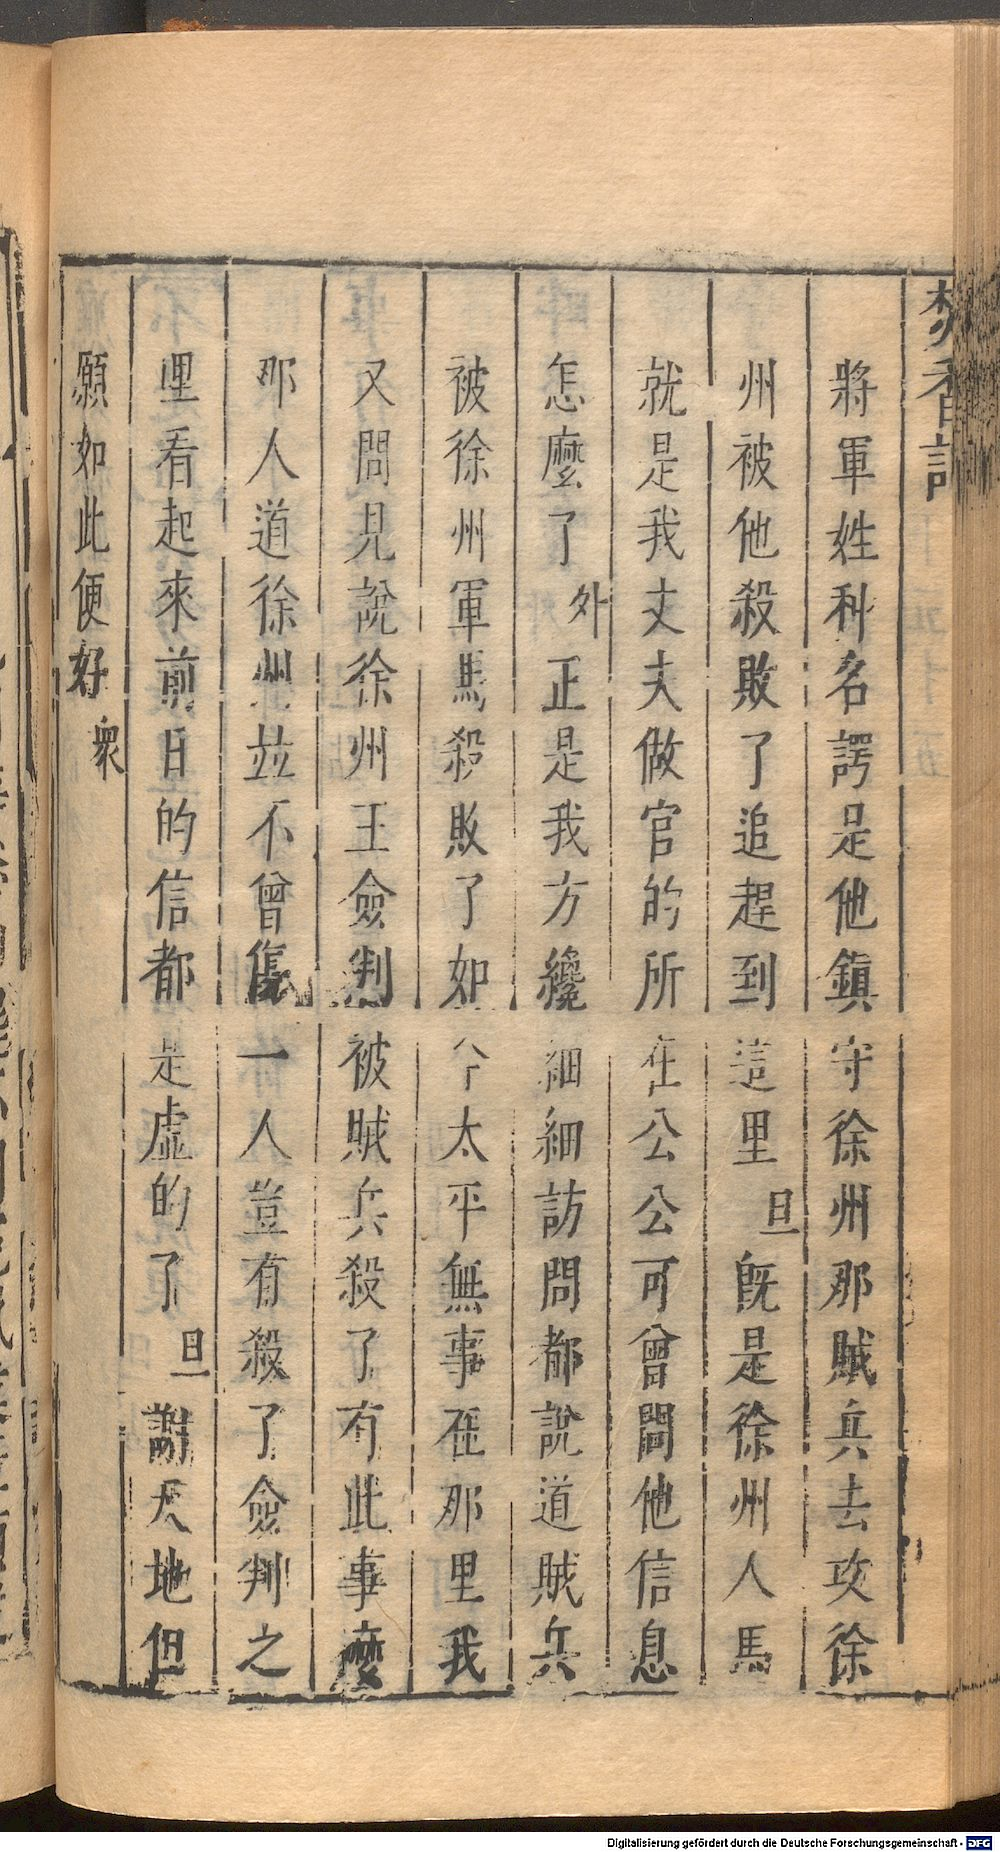 焚香記
將軍姓种名諤是他鎮守徐州那賊兵去攻徐
州被他殺敗了追趕到這里 旦 旣是徐州人馬
就是我丈夫做官的所在公公可曾聞他信息
怎麼了 外 正是我方纔細細訪問都說道賊兵
被徐州軍馬殺敗了如今太平無事在那里我
又問見說徐州王僉判被賊兵殺了有此事麼
那人道徐州並不曾傷一人豈有殺了僉判之
理看起來前日的信都是虛的了 旦 謝天地但
願如此便好 衆
Digitalisierung gefördert durch die Deutsche Forschungsgemeinschaft - DFG